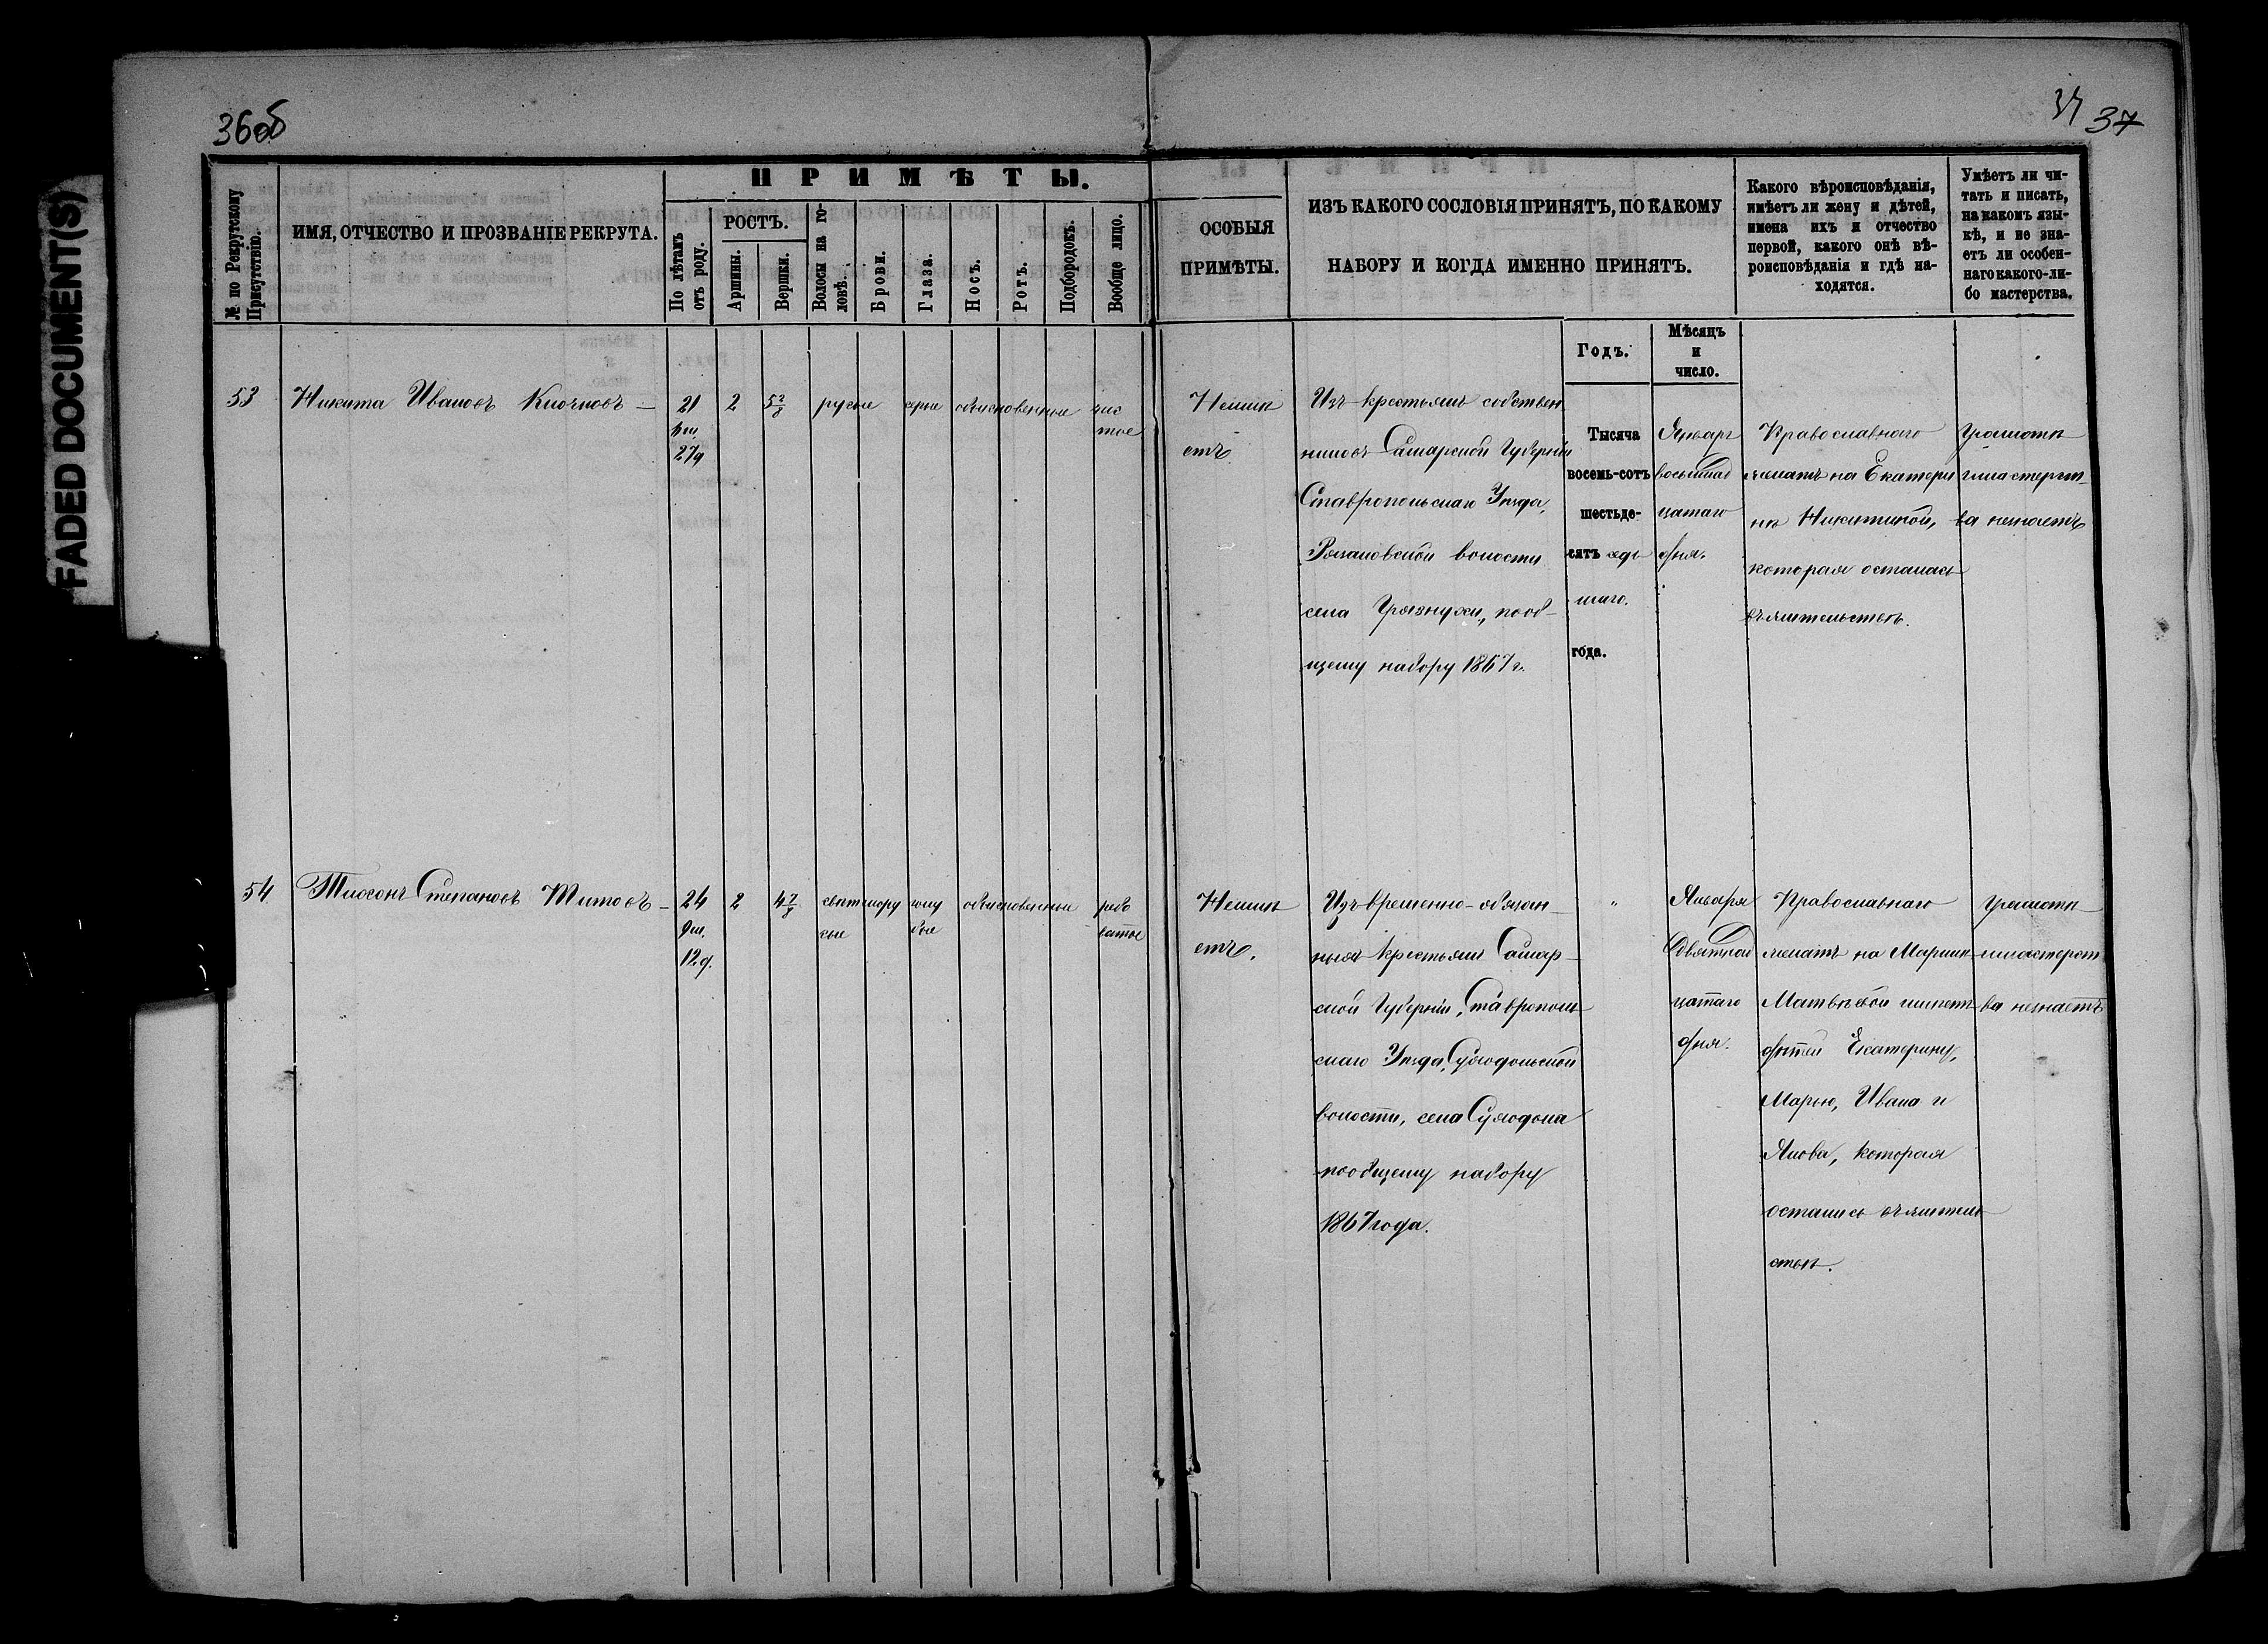 FADED DOCUMENT(S)
36об
37
37
ПРИМѢТЫ.
№ по Рекрутскому Присутствію.
ИМЯ, ОТЧЕСТВО И ПРОЗВАНІЕ РЕКРУТА.
По лѣтамъ отъ роду.
РОСТЪ.
Аршины.
Вершки.
Волосы на головѣ.
Брови.
Глаза.
Носъ.
Ротъ.
Подбородокъ.
Вообще лицо.
ОСОБЫЯ
ПРИМѢТЫ.
ИЗЪ КАКОГО СОСЛОВІЯ ПРИНЯТЪ, ПО КАКОМУ
НАБОРУ И КОГДА ИМЕННО ПРИНЯТЪ.
Годъ.
Мѣсяцъ
и
число.
Какого вѣроисповѣданія,
имѣетъ ли жену и дѣтей,
имена ихъ и отчество
первой, какого онѣ вѣ-
роисповѣданія и гдѣ на-
ходятся.
Умѣетъ ли чи-
тать и писать,
на какомъ язы-
кѣ, и не зна-
етъ ли особен-
наго какого-ли-
бо мастерства.
53
Никита Ивановъ
21
2
5 2/8
русые
серые
обыкновенные
чис
тое
27д
Неимѣ
етъ
Изъ крестьянъ собствен
никовъ Самарской Губерніи
Ставропольскаго Уѣзда,
Рязановской волости
села Грязнухи, пооб-
щему набору 1867 г.
Тысяча
восемь-сотъ
шестьде-
сятъ седь
маго
года.
Январь
восьмнад
цатаго
дня.
Православнаго
женатъ на Екатери
нѣ Никитиной,
которая осталась
въжительствѣ.
Грамотѣ
имастерст
ва незнаетъ
54
Тихонъ Степановъ Титовъ
24
9м.
12д.
2
4 7/8
светлору
сые
голу
бые
обыкновенные
рябо
ватое
Неимѣ
етъ.
Изъ временно-обязан
ныхъ крестьянъ Самар-
ской Губерніи, Ставрополь
скаго Уѣзда, Суходольской
волости, села Суходола
пообщему набору
1867 года.
"
Января
девятнад
цатаго
дня.
Православнаго
женатъ на Марии
Матвѣевой имѣетъ
дѣтей Екатерину,
Марью, Ивана и
Якова, которая
остались въжитель
ствѣ.
грамотѣ
имастерст
ва незнаетъ